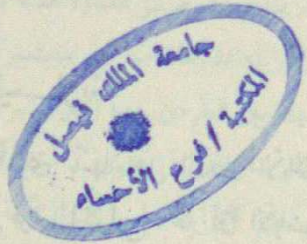 جامعة الملك فيصل
المكتبة / فرع الأحساء